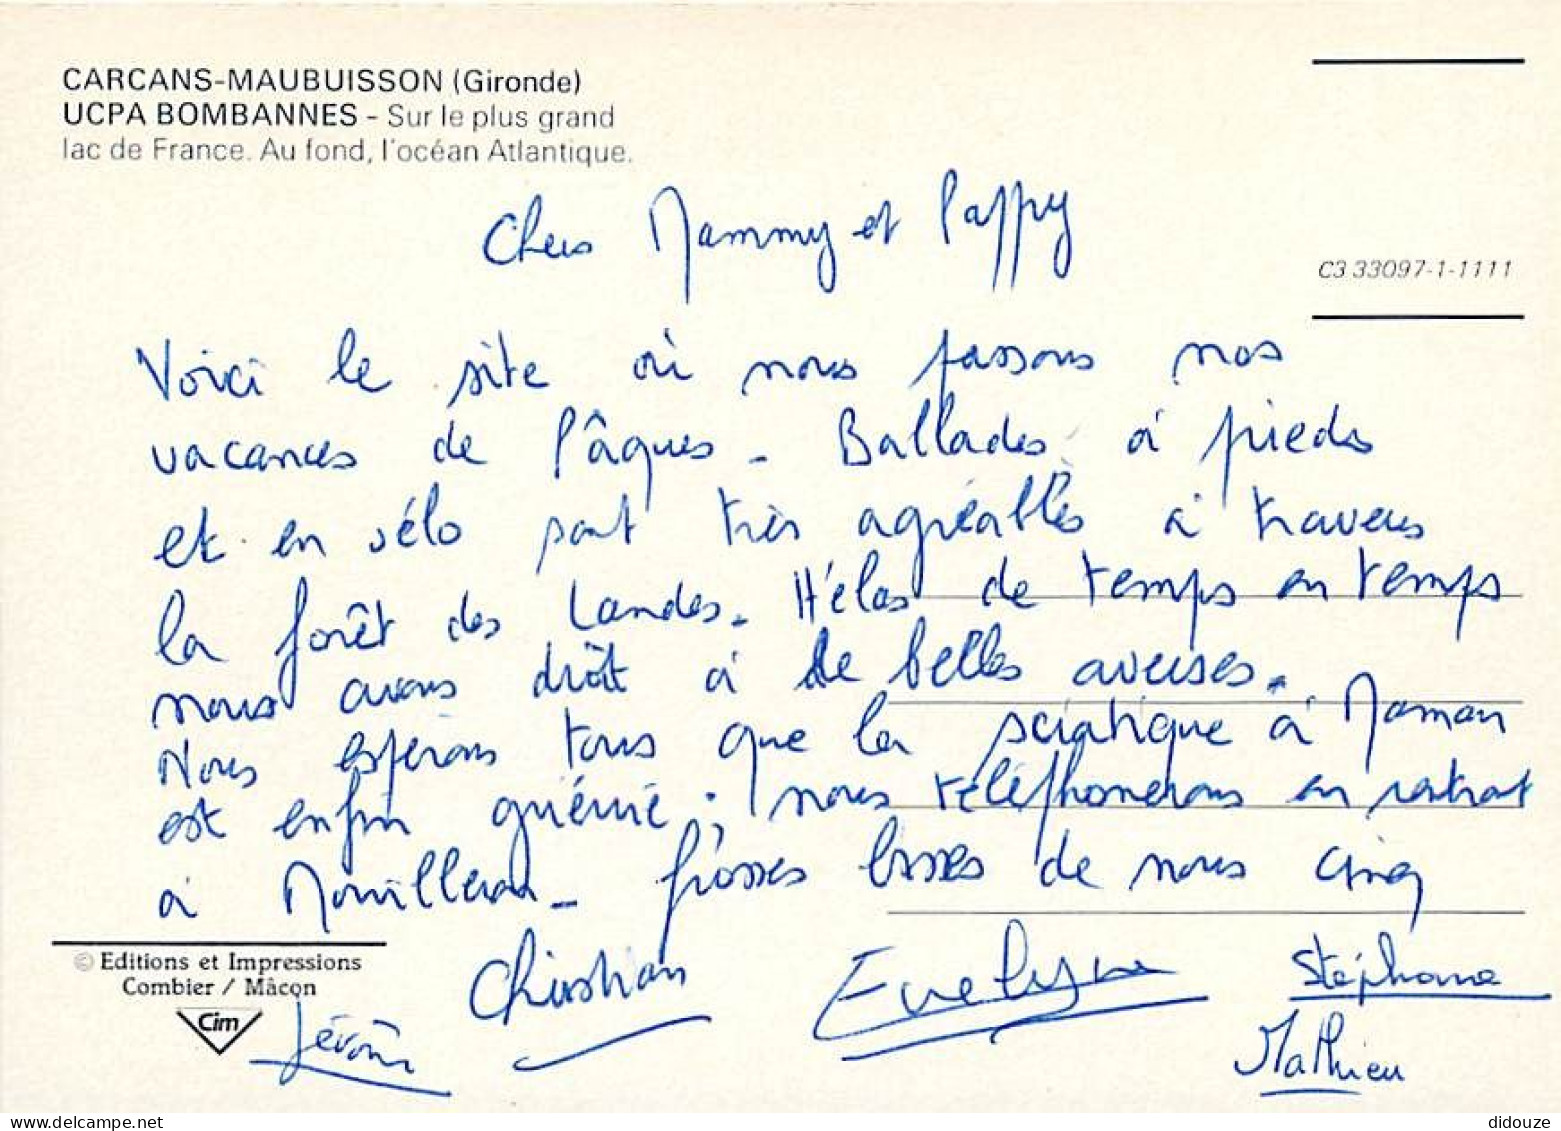 CARCANS-MAUBUISSON (Gironde)
UCPA BOMBANNES - Sur le plus grand
lac de France. Au fond, l'océan Atlantique.
C3 33097-1-1111
Chers Mammy et Pappy
Voici le site où nous passons nos
vacances de Pâques - Ballades à pieds
et en vélo sont très agréables à travers
la forêt des Landes. Hélas de temps en temps
nous avons droit à de belles averses.
Nous espérons tous que la sciatique à Maman
est enfin guérie ; nous téléphonerons en rentrant
à - grosses bises de nous cinq
Christian Evelyne Stéphane
Jérôme
Mathieu
© Editions et Impressions
Combier / Mâcon
Cim
didouze